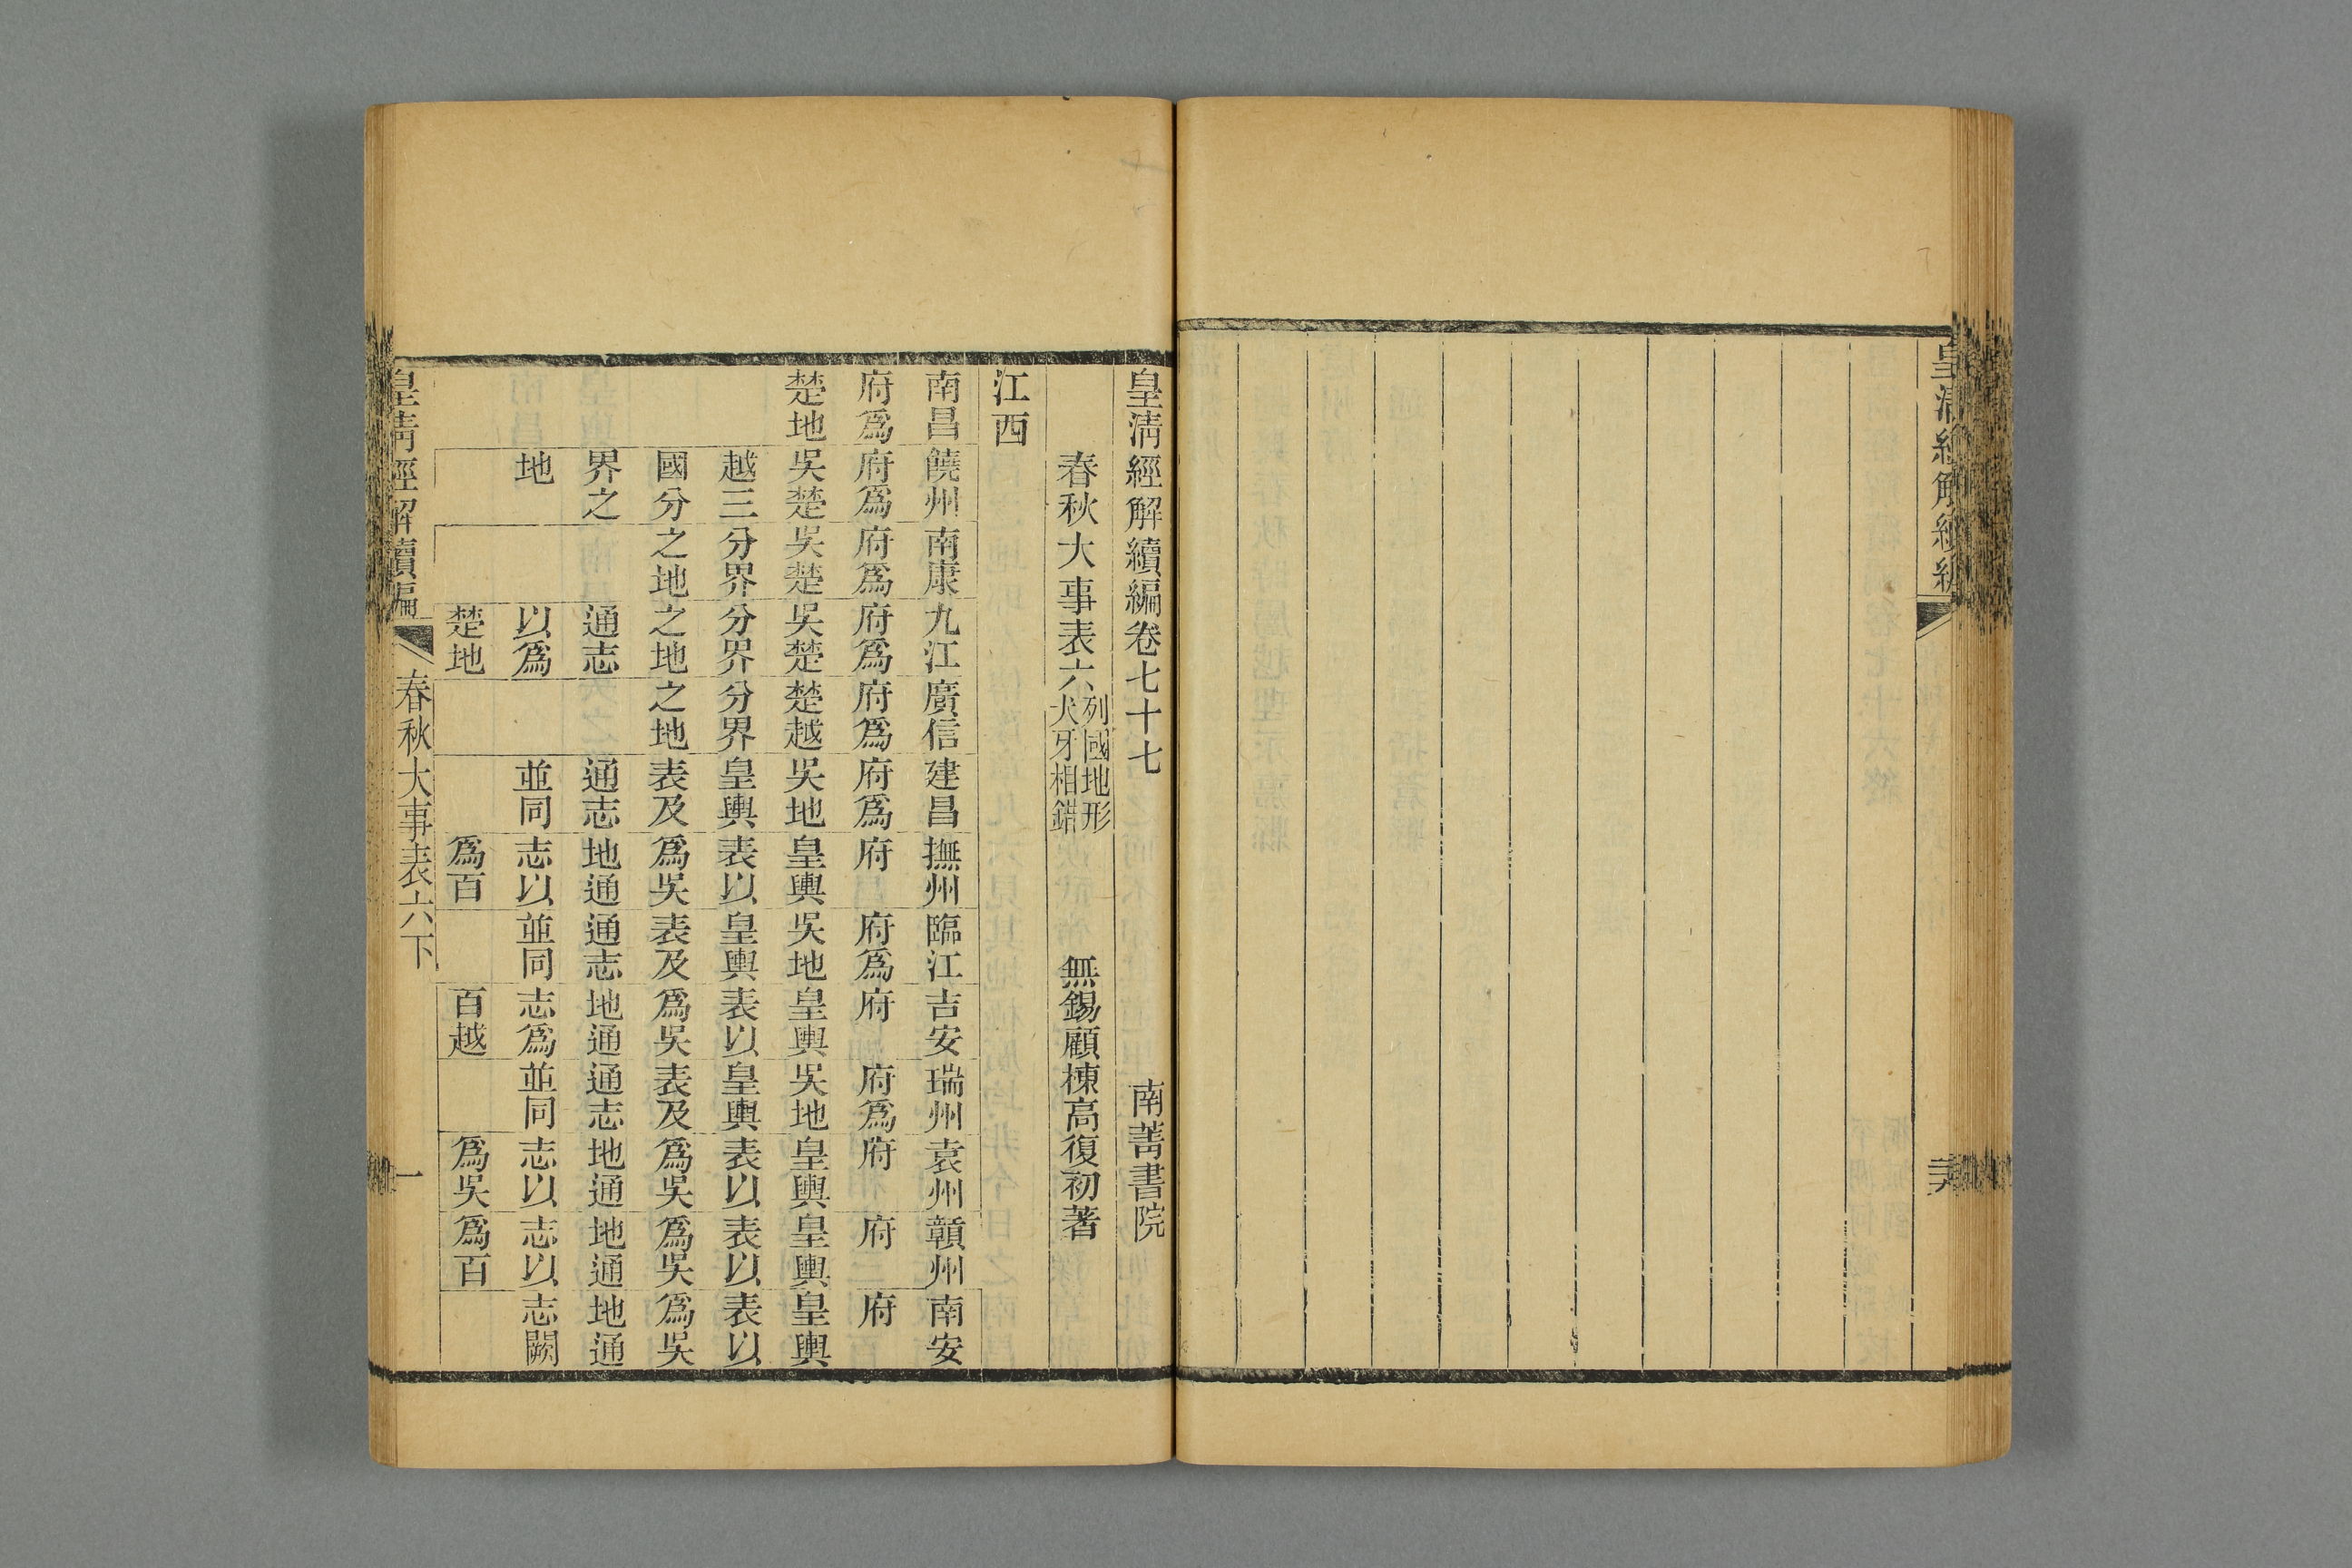 皇清經解續編
皇清經解續編卷七十七
南菁書院
春秋大事表六
列國地形
犬牙相錯
無錫顧棟高復初著
江西
南昌府爲楚地
饒州府爲吳楚越三國分界之地
南康府爲吳楚分界之地
九江府爲吳楚分界之地通志以爲楚地
廣信府爲楚越分界之地
建昌府爲吳地皇輿表及通志並同
撫州府皇輿表以爲吳地通志以爲百
臨江府爲吳地皇輿表及通志並同
吉安府皇輿表以爲吳地通志爲百越
瑞州府爲吳地皇輿表及通志並同
袁州府皇輿表以爲吳地通志以爲吳
贛州府皇輿表以爲吳地通志以爲百
南安府皇輿表以爲吳地通志闕
皇清經解續編
春秋大事表六下
一